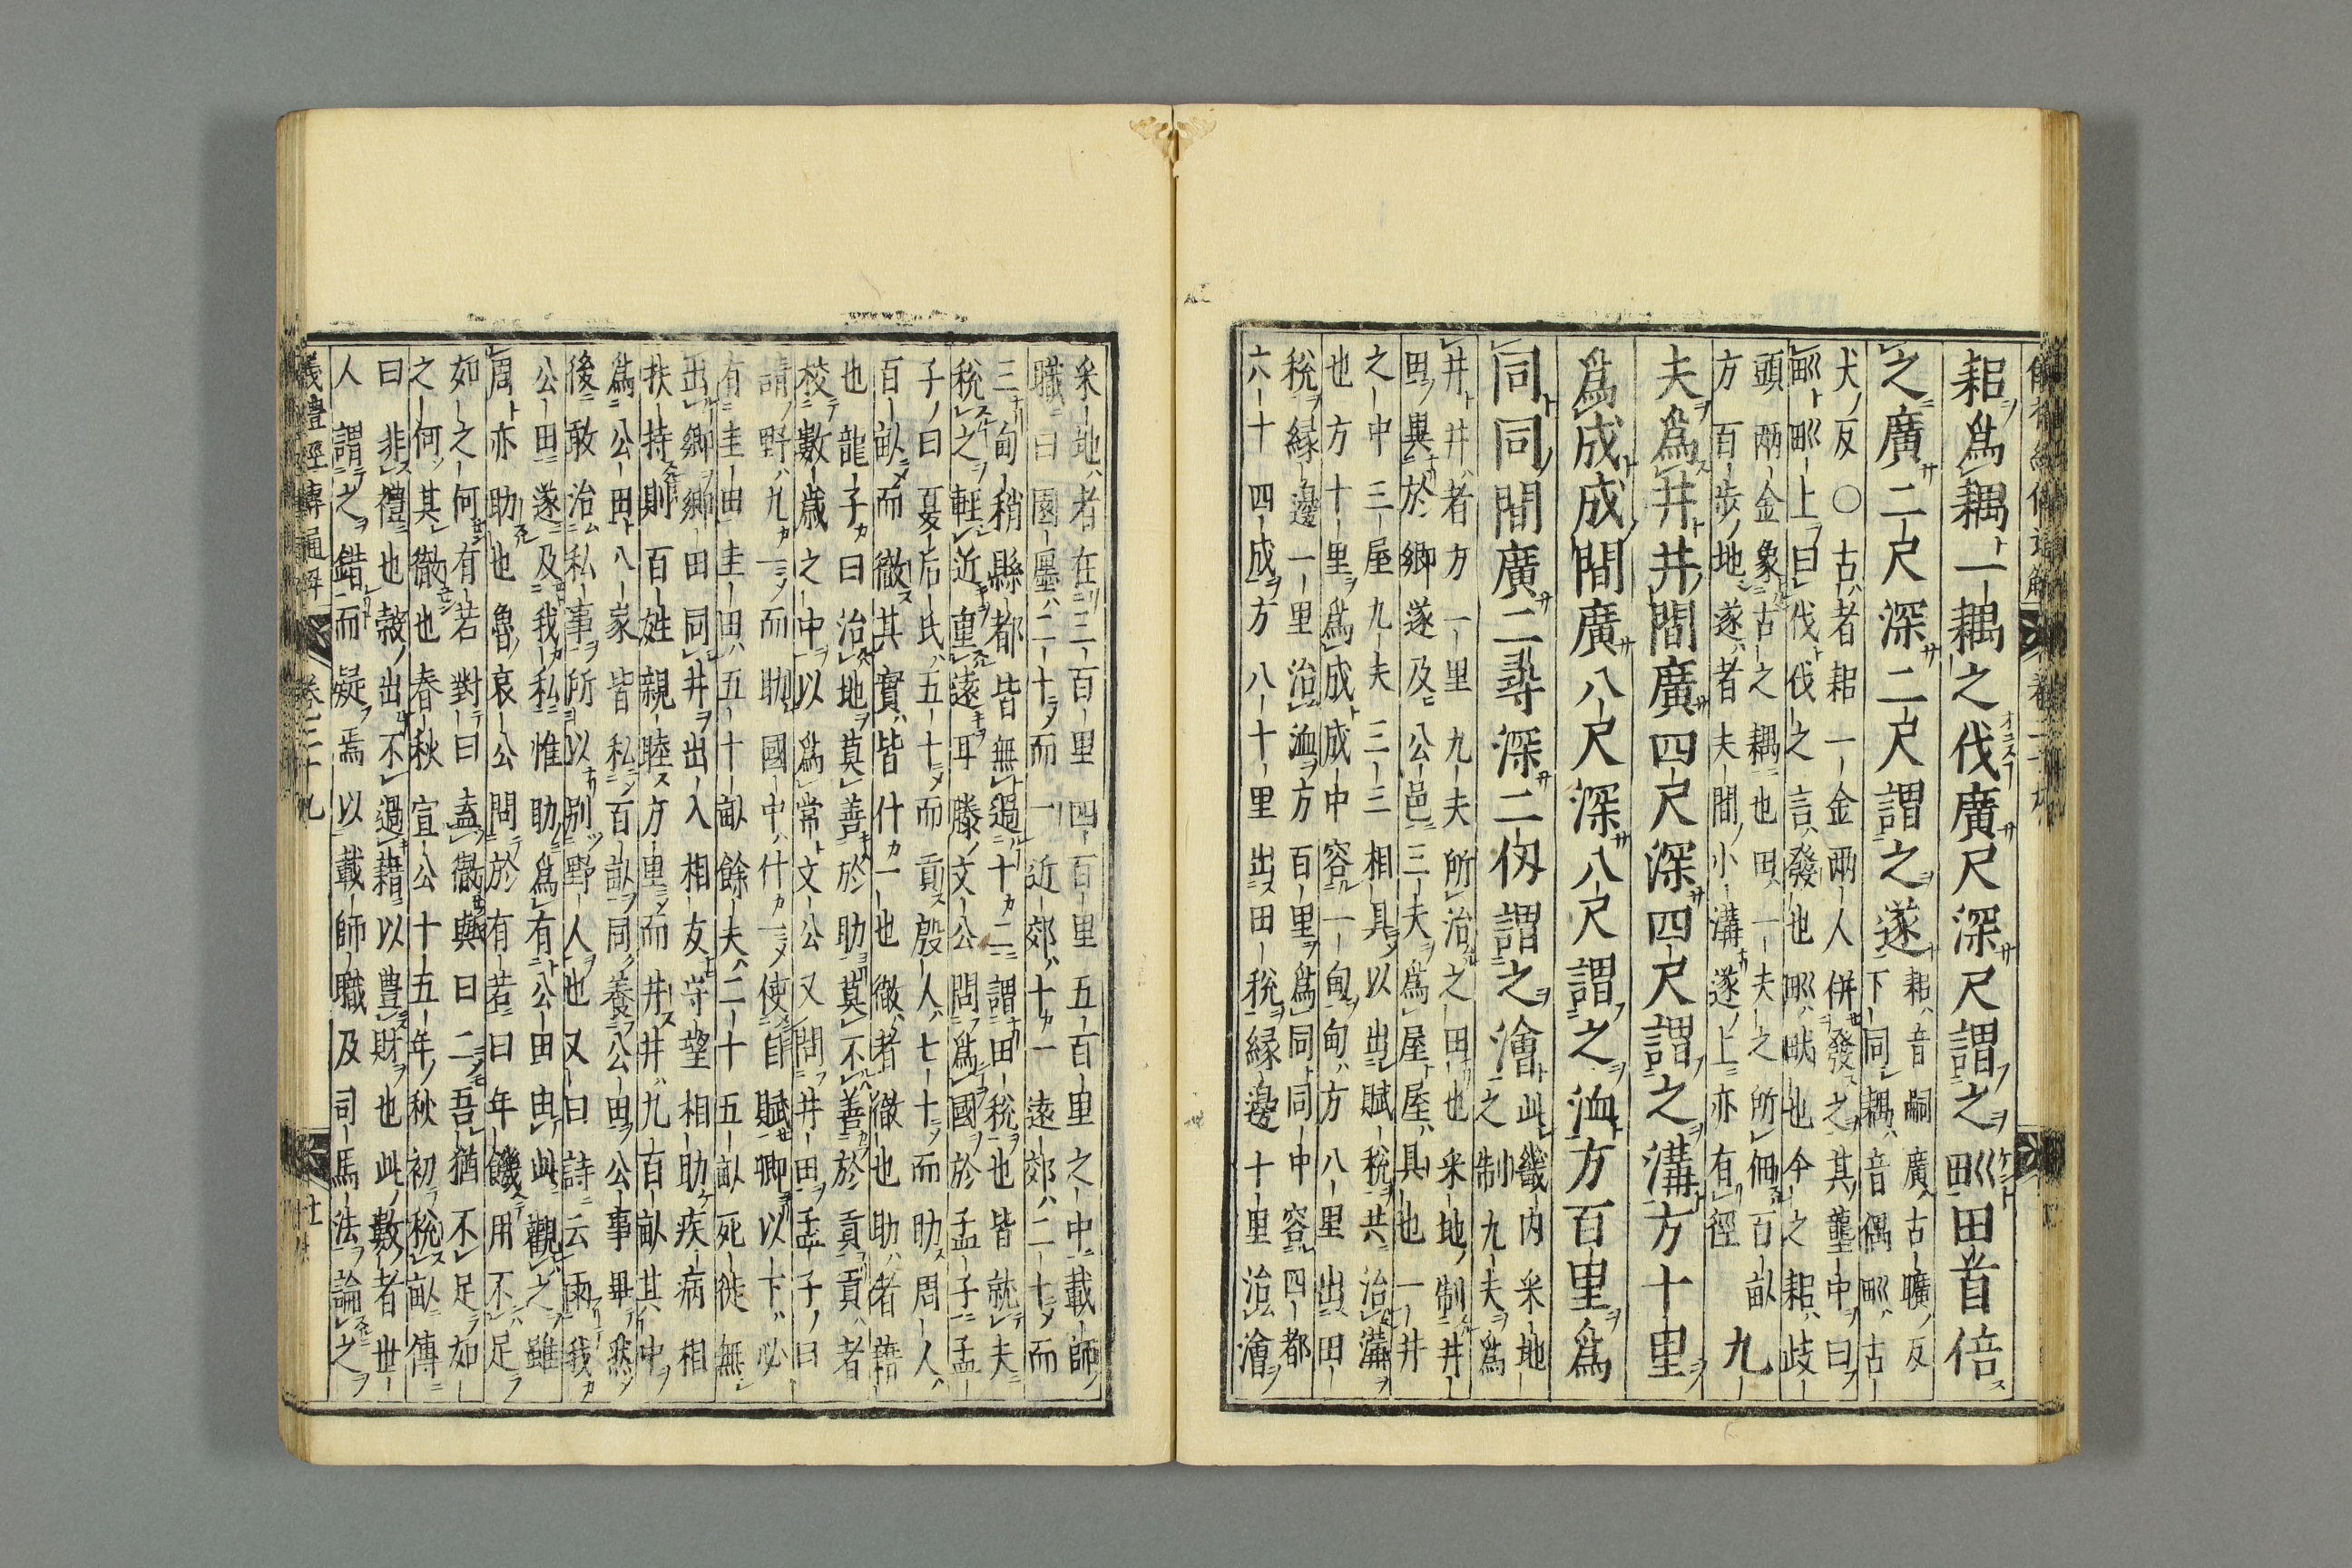 耜爲耦一耦之伐廣尺深尺謂之𤰕田首倍
之廣二尺深二尺謂之遂
耜音嗣廣古曠反
下同耦音偶𤰕古
犬反○古者耜一金兩人併發之其壟中曰
𤰕𤰕上曰伐伐之言發也𤰕畎也今之耜歧
頭兩金象古之耦也田一夫之所佃百畝
方百步地遂者夫間小溝遂上亦有徑
九
夫爲井井間廣四尺深四尺謂之溝方十里
爲成成間廣八尺深八尺謂之洫方百里爲
同同間廣二尋深二仞謂之澮
此畿内采地
之制九夫爲
井井者方一里九夫所治之田也采地制井
田異於鄉遂及公邑三夫爲屋屋具也一井
之中三屋九夫三三相具以出賦稅共治溝
也方十里爲成成中容一甸甸方八里出田
稅緣邊一里治洫方百里爲同同中容四都
六十四成方八十里出田稅緣邊十里治澮
采地者在三百里四百里五百里之中載師
職曰園廛二十而一近郊十一遠郊二十而
三甸稍縣都皆無過十二謂田稅也皆就夫
稅之輕近重遠耳滕文公問爲國於孟子孟
子曰夏后氏五十而貢殷人七十而助周人
百畝而徹其實皆什一也徹者徹也助者藉
也龍子曰治地莫善於助莫不善於貢貢者
校數歲之中以爲常文公又問井田孟子曰
請野九一而助國中什一使自賦卿以下必
有圭田圭田五十畝餘夫二十五畝死徙無
出鄉鄉田同井出入相友守望相助疾病相
扶持則百姓親睦方里而井井九百畝其中
爲公田八家皆私百畝同養公田公事畢然
後敢治私事所以別野人也又曰詩云雨我
公田遂及我私惟助爲有公田由此觀之雖
周亦助也魯哀公問於有若曰年饑用不足
如之何有若對曰盍徹與曰二吾猶不足如
之何其徹也春秋宣公十五年秋初稅畝傳
曰非禮也穀出不過藉以豊財也此數者世
人謂之錯而疑焉以載師職及司馬法論之
儀禮經傳通解 卷二十九